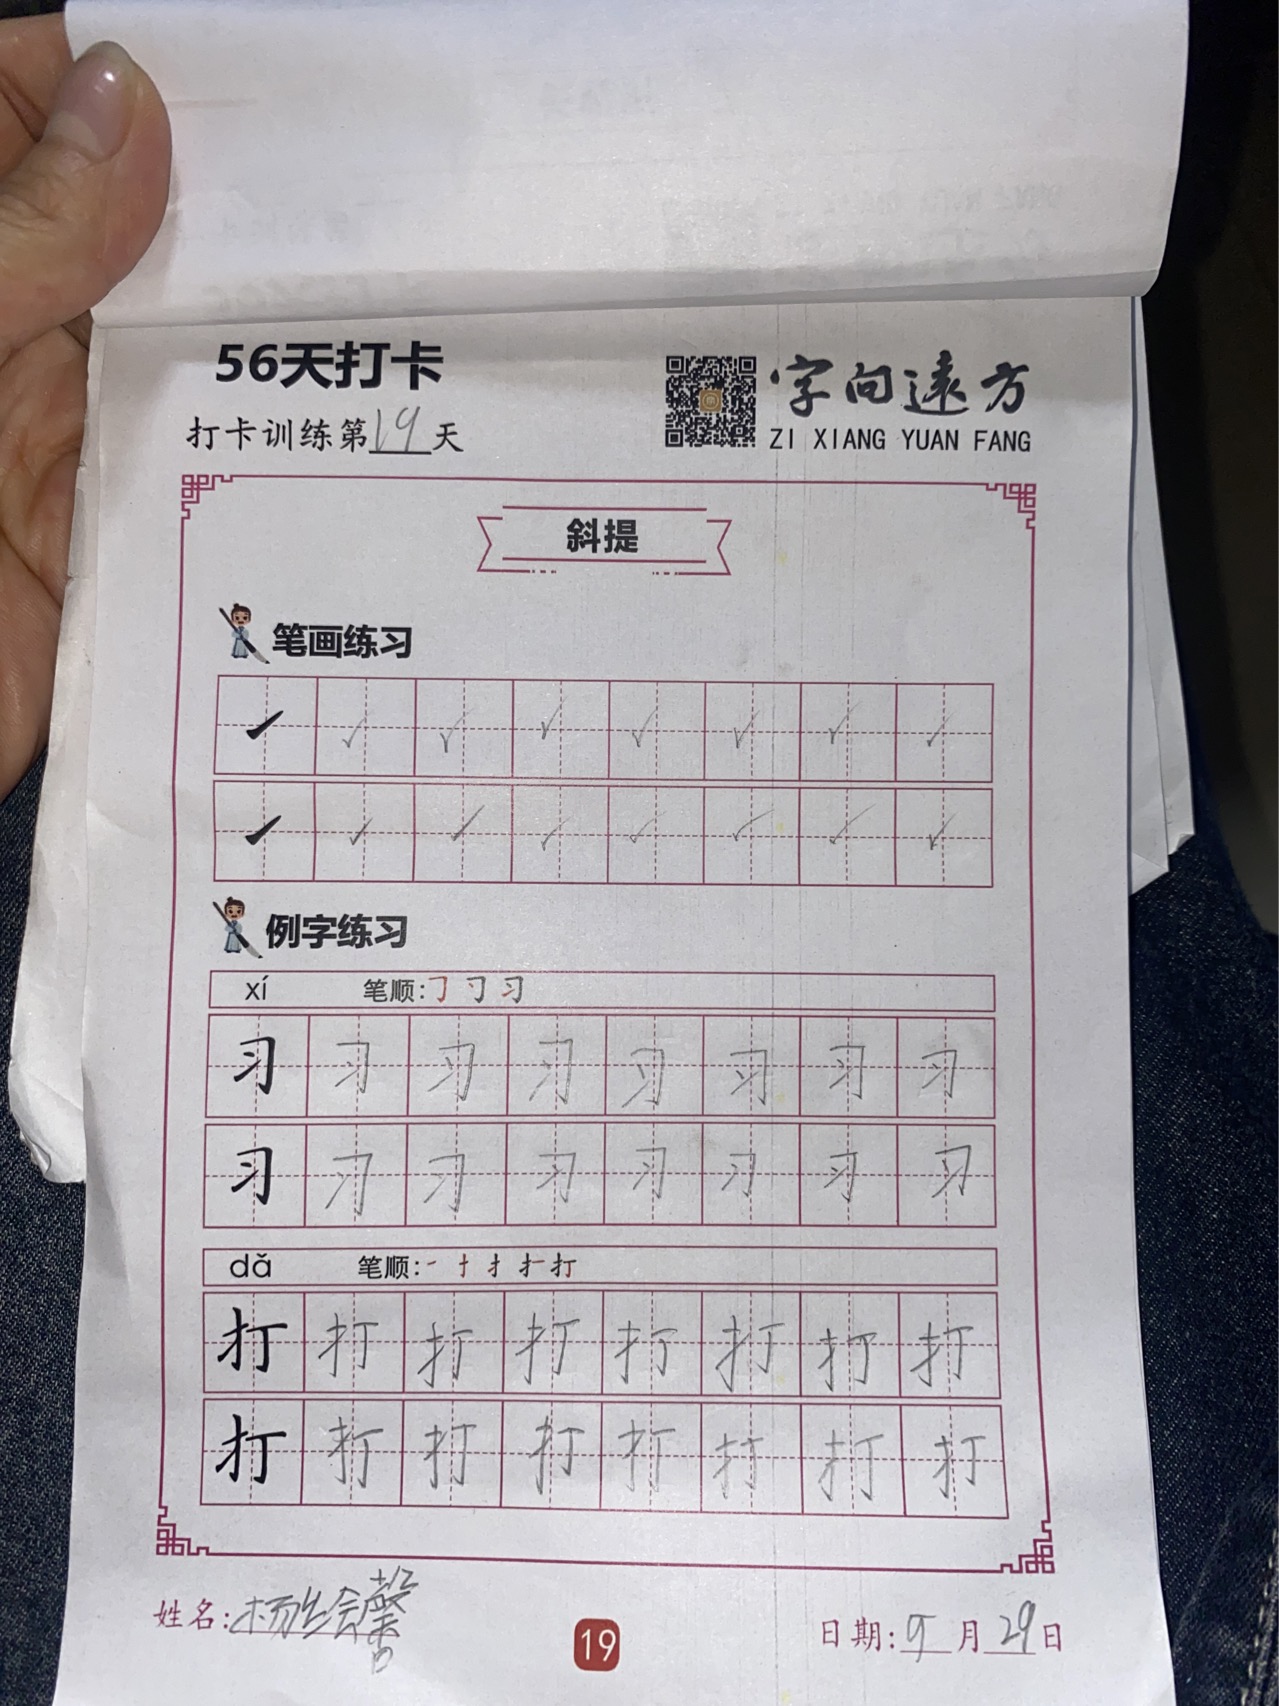 56天打卡
打卡训练第19天
字向远方
ZI XIANG YUAN FANG
斜提
笔画练习
例字练习
xí 笔顺:
习 习 习 习 习 习 习 习
习 习 习 习 习 习 习 习
dǎ 笔顺:
打 打 打 打 打 打 打 打
打 打 打 打 打 打 打 打
姓名:杨绘馨
19
日期: 月29日